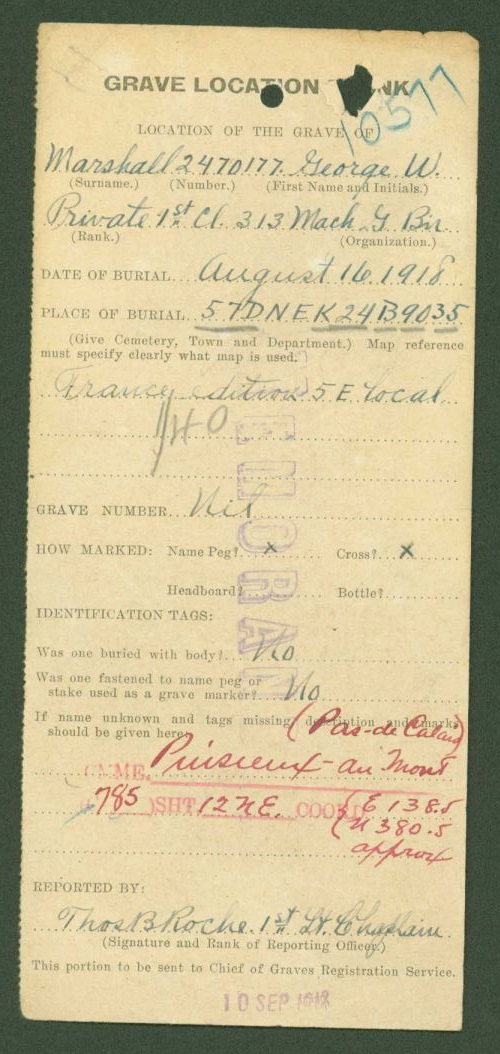 GRAVE LOCATION NK
10577
LOCATION OF THE GRAVE OF
Marshall 2470177. George W.
(Surname.) (Number.) (First Name and Initials.)
Private 1st Cl. 313 Mach. G Bn
(Rank.) (Organization.)
DATE OF BURIAL August 16 1918
PLACE OF BURIAL 57DNEK24B9035
(Give Cemetery, Town and Department.) Map reference
must specify clearly what map is used.
edition 5 E local
140
GRAVE NUMBER Nil
HOW MARKED: Name Peg? x Cross? x
Headboard? Bottle?
IDENTIFICATION TAGS:
Was one buried with body? No
Was one fastened to name peg or
stake used as a grave marker? No
If name unknown and tags missing, description and marks
should be given here
(Pas-de Calais)
Puisieux-au Mont
785 SHT. 12NE. COORD (E 138.5
(N 380.5
approx
REPORTED BY:
Thos B Roche 1st Lt. Chaplain
(Signature and Rank of Reporting Officer.)
This portion to be sent to Chief of Graves Registration Service.
10 SEP 1918